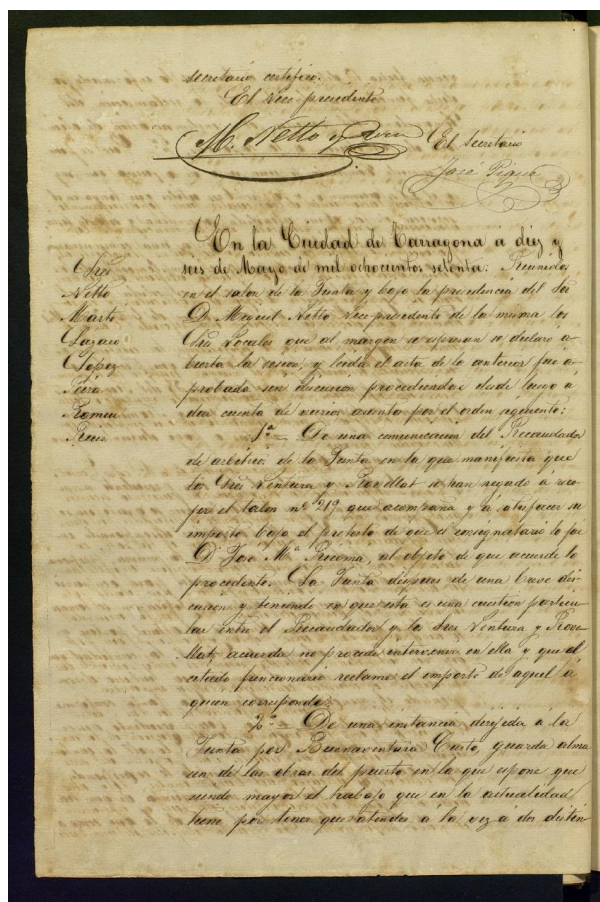 secretario certifico.
El Vice presidente
M. Netto y
El Secretario
José Pigué
En la Ciudad de Tarragona á diez y
seis de Mayo de mil ochocientos setenta: Reunidos
en el salon de la Junta y bajo la presidencia del Sor
D. Miguel Netto, Vicepresidente de la misma los
Sres Vocales que al margen se espresan se declaró a-
bierta la sesion, y leida el acta de la anterior fue a-
probada sin discusion procediendose desde luego á
dar cuenta de varios asuntos por el orden siguiente:
Sres
Netto
Martí
Lazaro
Lopez
Piera
Romeu
1º = De una comunicacion del Recaudador
de arbitrios de la Junta en la que manifiesta que
los Sres Ventura y Rovellat se han negado á reco-
jer el talon nº 219 que acompaña y á satisfacer su
importe bajo el pretesto de que el consignatario lo fue
D. José Mª Ricomá, al objeto de que acuerde lo
procedente. La Junta despues de una breve dis-
cusion y teniendo en que esta es una cuestion particu-
lar entre el Recaudador y los Sres Ventura y Rove-
llat, acuerda no procede intervenir en ella y que el
citado funcionario reclame el importe de aquel á
quien corresponda.
2º = De una instancia dirijida á la
Junta por Buenaventura Custo, guarda alma-
cen de las obras del puerto en la que espone que
siendo mayor el trabajo que en la actualidad
tiene por tener que atender á la vez á dos distin-